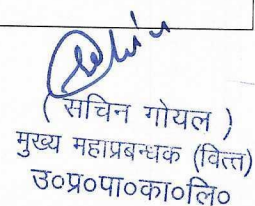 ( सचिन गोयल )
मुख्य महाप्रबन्धक (वित्त)
उ०प्र०पा०का०लि०